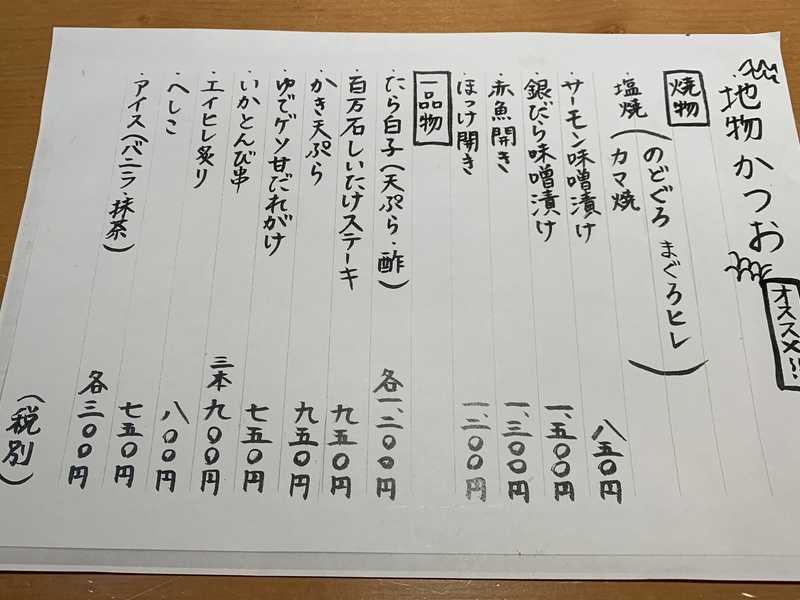 ・地物かつお
オススメ!!
焼物
・塩焼(のどぐろ まぐろヒレ)
カマ焼
・サーモン味噌漬け 八五〇円
・銀だら味噌漬け 一、五〇〇円
・赤魚開き 一、三〇〇円
・ほっけ開き 一、二〇〇円
一品物
・たら白子(天ぷら・酢) 各一、二〇〇円
・百万石しいたけステーキ 九五〇円
・かき天ぷら 九五〇円
・ゆでゲソ甘だれがけ 七五〇円
・いかとんび串 三本九〇〇円
・エイヒレ炙り 八〇〇円
・へしこ 七五〇円
・アイス(バニラ・抹茶) 各三〇〇円
(税別)